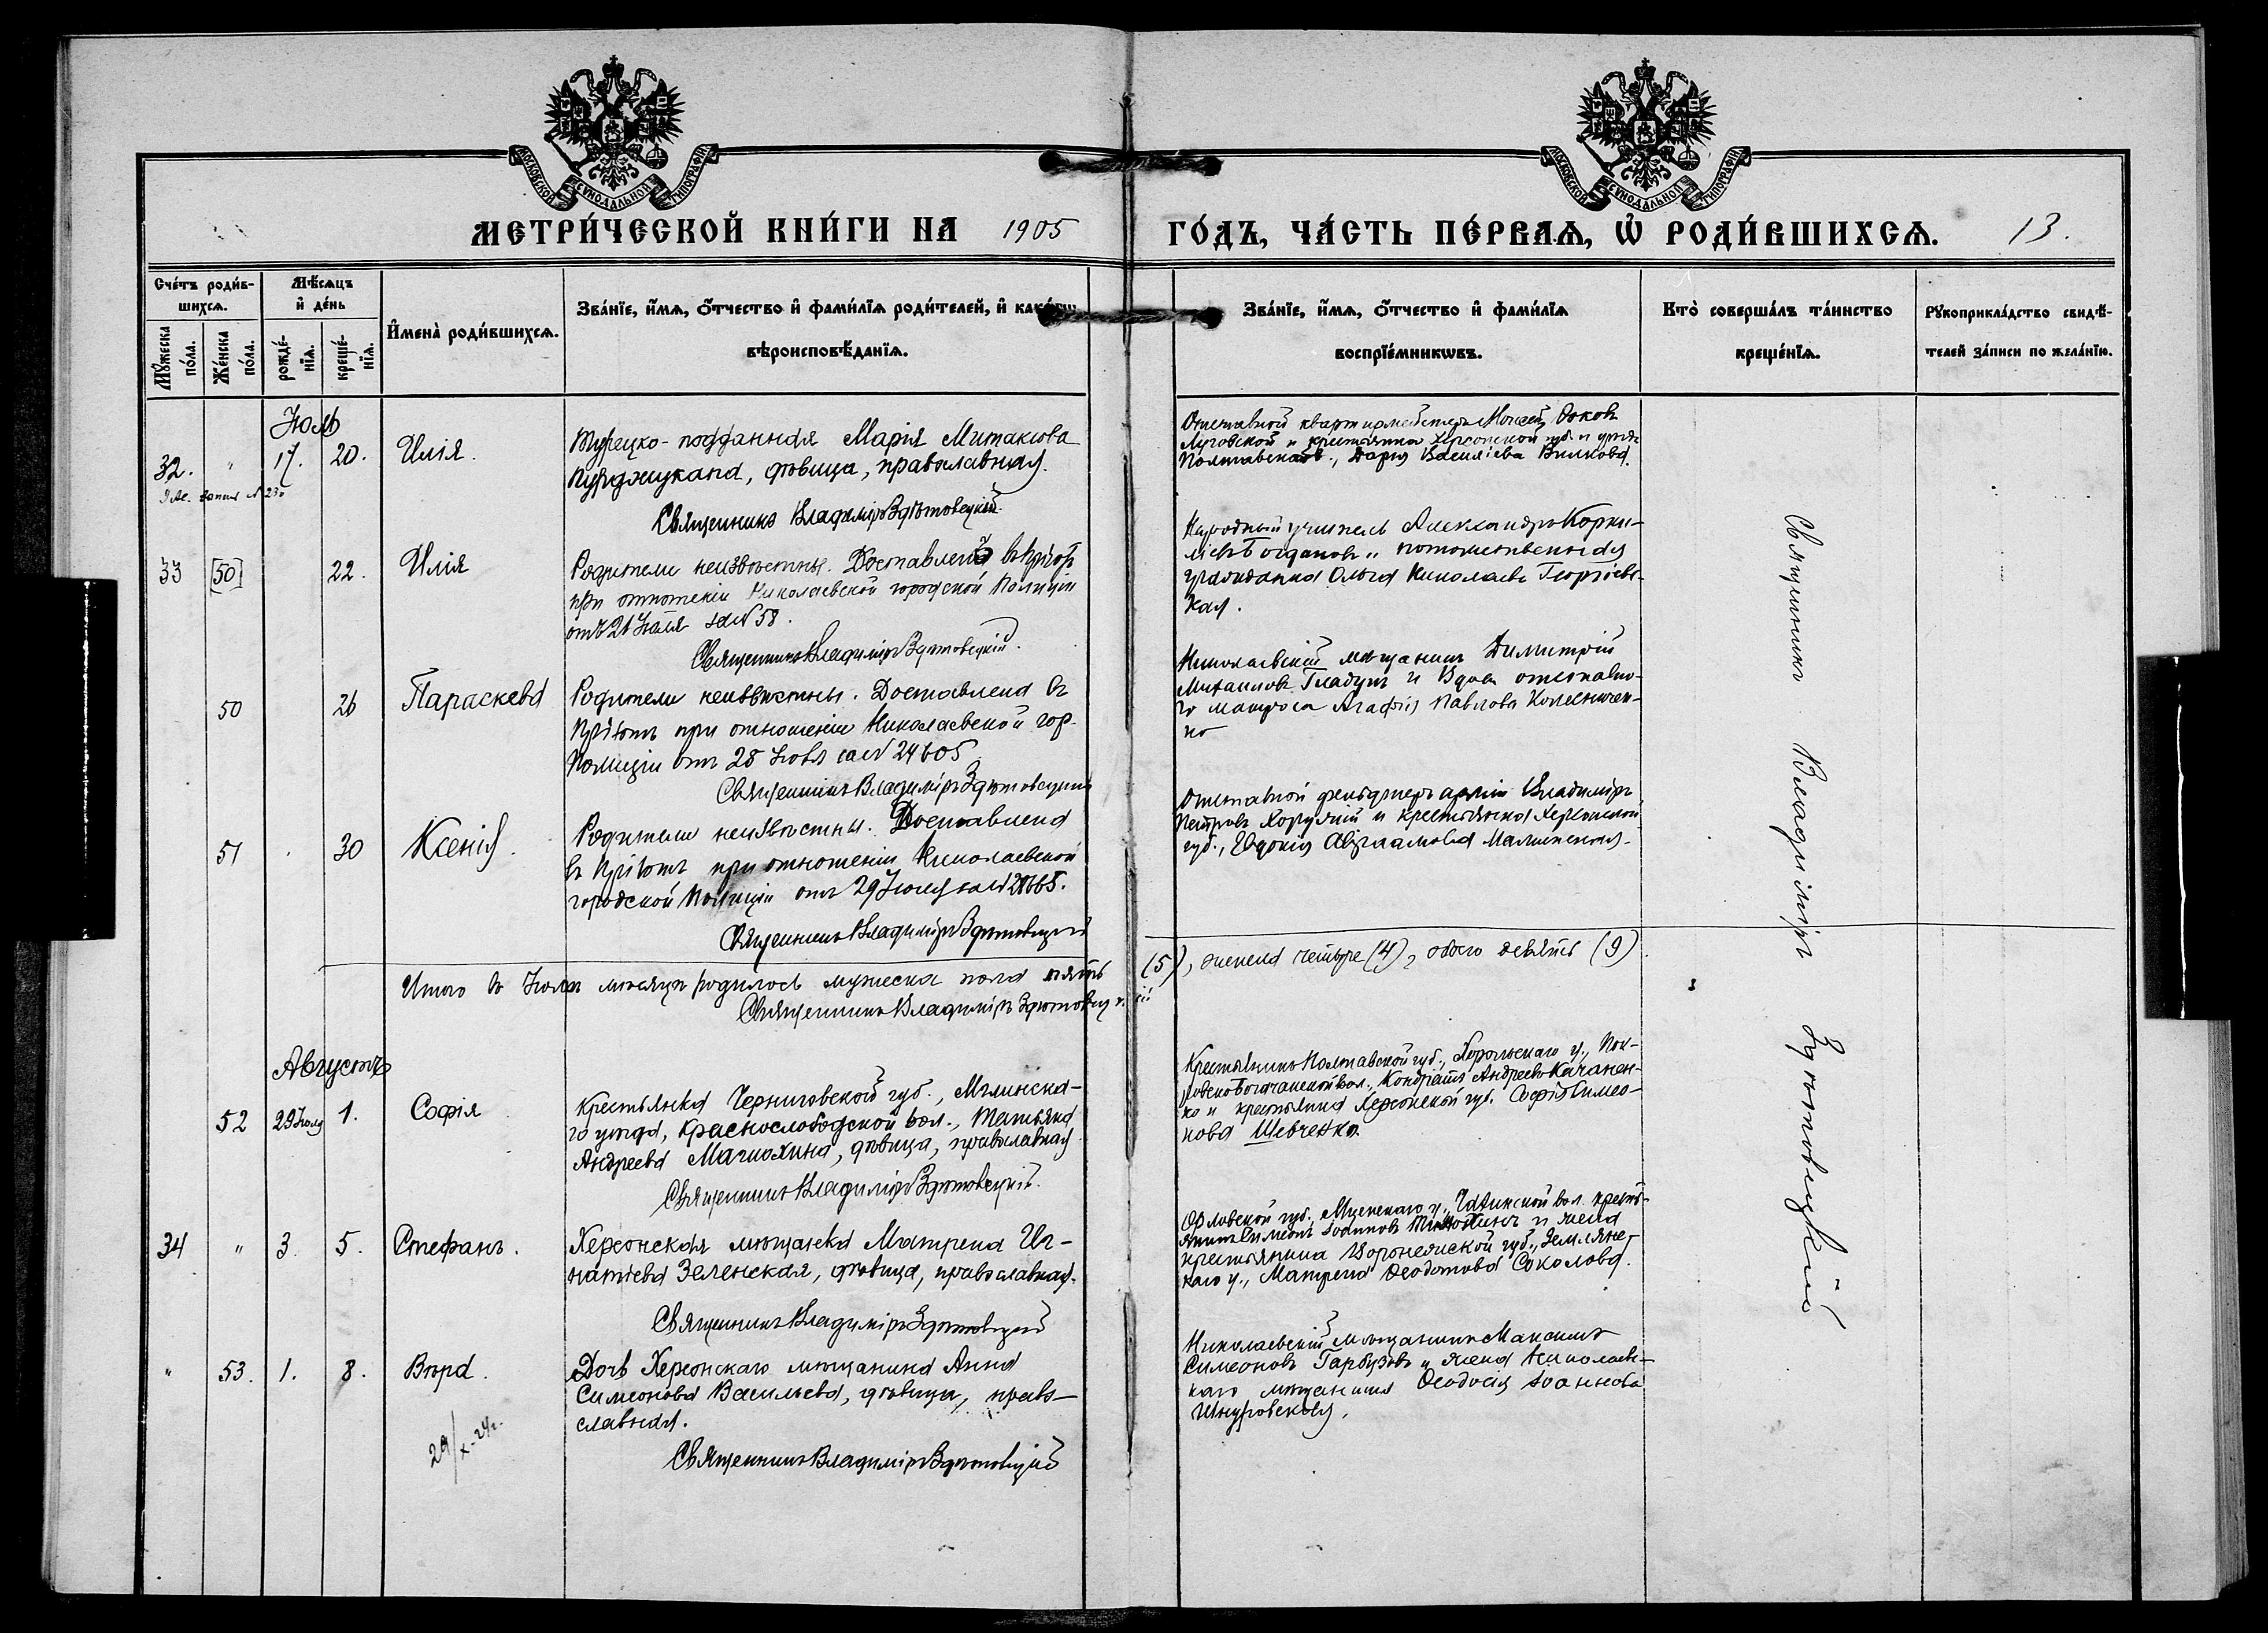 МОСКОВСКОЙ СѴНОДАЛЬНОЙ ТИПОГРАФІИ
МОСКОВСКОЙ СѴНОДАЛЬНОЙ ТИПОГРАФІИ
МЕТРИ́ЧЕСКОЙ КНИ́ГИ НА 1905 ГО́ДЪ, ЧА́СТЬ ПЕ́РВАѦ, Ѡ РОДИ́ВШИХСѦ. 13.
Сче́тъ роди́в-
шихсѧ.
Мѣ́сѧцъ
и҆ де́нь
Мꙋ́жеска
по́ла.
Же́нска
по́ла.
рожде́-
нїѧ.
креще́-
нїѧ.
И҆мена̀ роди́вшихсѧ.
Зва́нїе, и҆́мѧ, ѻ҆́тчество и҆ фами́лїѧ роди́телей, и҆
вѣроисповѣ́данїѧ.
Зва́нїе, и҆́мѧ, ѻ҆́тчество и҆ фами́лїѧ
воспрїе́мникѡвъ.
Кто̀ соверша́лъ та́инство
креще́нїѧ.
Рꙋкоприкла́дство свидѣ́-
телей за́писи по жела́нїю.
Іюль
32. " 17. 20. Илія.
Турецко-подданная Марія
дѣвица, православная.
Священникъ Владиміръ Здѣтовецкій.
Отставной квартирмейстеръ Моисей
Луговской и крестьянка Херсонской губ. и уѣзда
Дарія Василіева Вилкова.
33 [50] 22. Илія
Родители неизвѣстны. Доставленъ въ Пріютъ
при отношеніи Николаевской городской Полиціи
отъ 21 Іюля за № 58.
Священникъ Владиміръ Здѣтовецкій.
Народный учитель Александръ
Богдановъ и потомственная
гражданка Ольга Николаевна Георгіевс-
кая.
50 26 Параскева
Родители неизвѣстны. Доставлена въ
Пріютъ при отношеніи Николаевской гор.
Полиціи отъ 25 за № 24605
Священникъ Владиміръ Здѣтовецкій
Николаевскій мѣщанинъ Димитрій
Михаиловъ Гладунъ и вдова отставно-
го матроса Агафія Павлова Колесничен-
ко
51 30 Ксенія.
Родители неизвѣстны. Доставлена
въ Пріютъ при отношеніи Николаевской
городской Полиціи отъ 29 Іюля за №
Священникъ Владиміръ Здѣтовецкій
Отставной фельдшеръ арміи Владиміръ
Петровъ и крестьянка Херсонской
губ., Евдокія Авраамова
Итого въ Іюлѣ мѣсяцѣ родилось мужеска пола пять (5), женска четыре (4), обоего девять (9).
Священникъ Владиміръ Здѣтовецкій
Августъ
52 29 Іюля 1. Софія
Крестьянка Черниговской губ., Мглинска-
го уѣзда, Краснослободской вол., Татьяна
Андреева дѣвица, православная
Священникъ Владиміръ Здѣтовецкій.
Крестьянинъ Полтавской губ., Хорольскаго у.,
вол., Кондратъ Андреевъ Качанен-
ко и крестьянка Херсонской губ. Софія Симео-
нова Шевченко.
34 " 3. 5. Стефанъ.
Херсонская мѣщанка Матрена Иг-
натіева Зеленская, дѣвица, православная.
Священникъ Владиміръ Здѣтовецкій
Орловской губ., Мценскаго у., вол. кресть-
янинъ Симеонъ Іоанновъ и жена
крестьянина Воронежской губ., Землянс-
каго у., Матрена Ѳеодотова Соколова.
" 53. 1. 8. Вѣра.
Дочь Херсонскаго мѣщанина Анна
Симеонова Васильева, дѣвица, право-
славная.
Священникъ Владиміръ Здѣтовецкій
Николаевскій мѣщанинъ Максимъ
Симеоновъ Гарбузовъ и жена Николаевс-
каго мѣщанина Ѳеодосія Іоаннова
Шнуровская.
29/X-24г.
Священникъ Владиміръ Здѣтовецкій